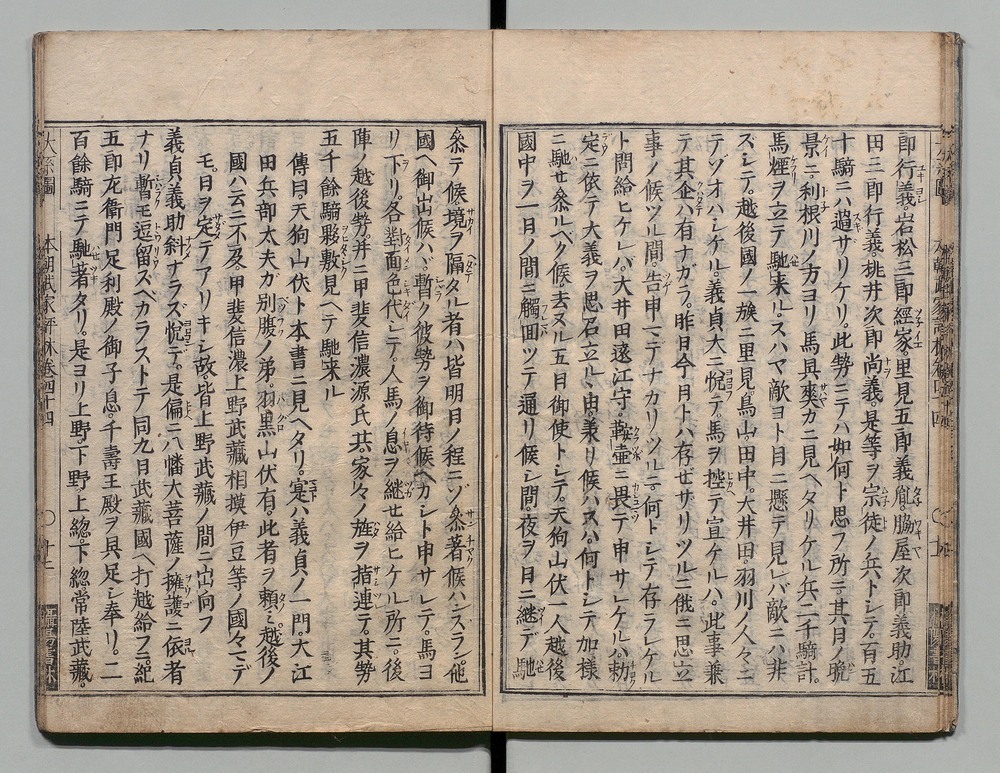 郎行義。岩松三郎経家。里見五郎義胤。脇屋次郎義助。江
田三郎行義。桃井次郎尚義。是等ヲ宗徒ノ兵トシテ。百五
十騎ニハ過サリケリ。此勢ニテハ如何ト思フ所ニ其日ノ晩
景ニ。利根川ノ方ヨリ馬具爽カニ見ヘタリケル兵二千騎計。
馬煙ヲ立テ馳来ル。スハマ敵ヨト目ニ懸テ見レバ敵ニハ非
ズシテ。越後國ノ一族ニ里見鳥山。田中。大井田。羽川ノ人々ニ
テゾオハシケル。義貞大ニ悦テ。馬ヲ控テ宣ケルハ。此事兼
テ其企ハ有ナガラ。昨日今日トハ存ゼザリツルニ俄ニ思立
事ノ候ツル間。告申マデナカリツルニ何トシテ存ラレケル
ト問給ヒケレバ。大井田遠江守。鞍壷ニ畏テ申サレケルハ勅
定ニ依テ大義ヲ思召立ルヽ由。承リ候ハスハ。何トシテ加様
ニ馳セ参ルベク候。去ヌル五日御使トシテ。天狗山伏一人越後
國中ヲ一日ノ間ニ觸回ツテ通リ候シ間。夜ヲ日ニ継デ馳
参テ候。境ヲ隔タル者ハ皆明日ノ程ニゾ参著候ハンズラン。他
國ヘ御出候ハヾ。暫ク彼勢ヲ御待候ヘカシト申サレテ。馬ヨ
リ下リ。各對面色代シテ。人馬ノ息ヲ継セ給ヒケル所ニ。後
陣ノ越後勢。并ニ甲斐信濃源氏共。家々ノ旌ヲ指連テ。其勢
五千餘騎夥敷見ヘテ馳来ル
傳曰。天狗山伏ト本書ニ見ヘタリ。寔ハ義貞ノ一門。大江
田兵部太夫ガ別腹ノ弟。羽黒山伏有。此者ヲ頼ミ越後ノ
國ハ云ニ不及。甲斐信濃上野武藏相摸伊豆等ノ國々ニデ
モ。日ヲ定テアリキシ故。皆上野武藏ノ間ニ出向フ
義貞義助斜ナラズ悦デ。是偏ニ八幡大菩薩ノ擁護ニ依者
ナリ。暫モ逗留スベカラストテ同九日武藏國ヘ打越給フニ。紀
五郎左衛門足利殿ノ御子息。千壽王殿ヲ具足シ奉リ。二
百餘騎ニテ馳著タリ。是ヨリ上野。下野。上総。下総常陸武藏。
大系圖 本朝武家評林巻四十四 十七